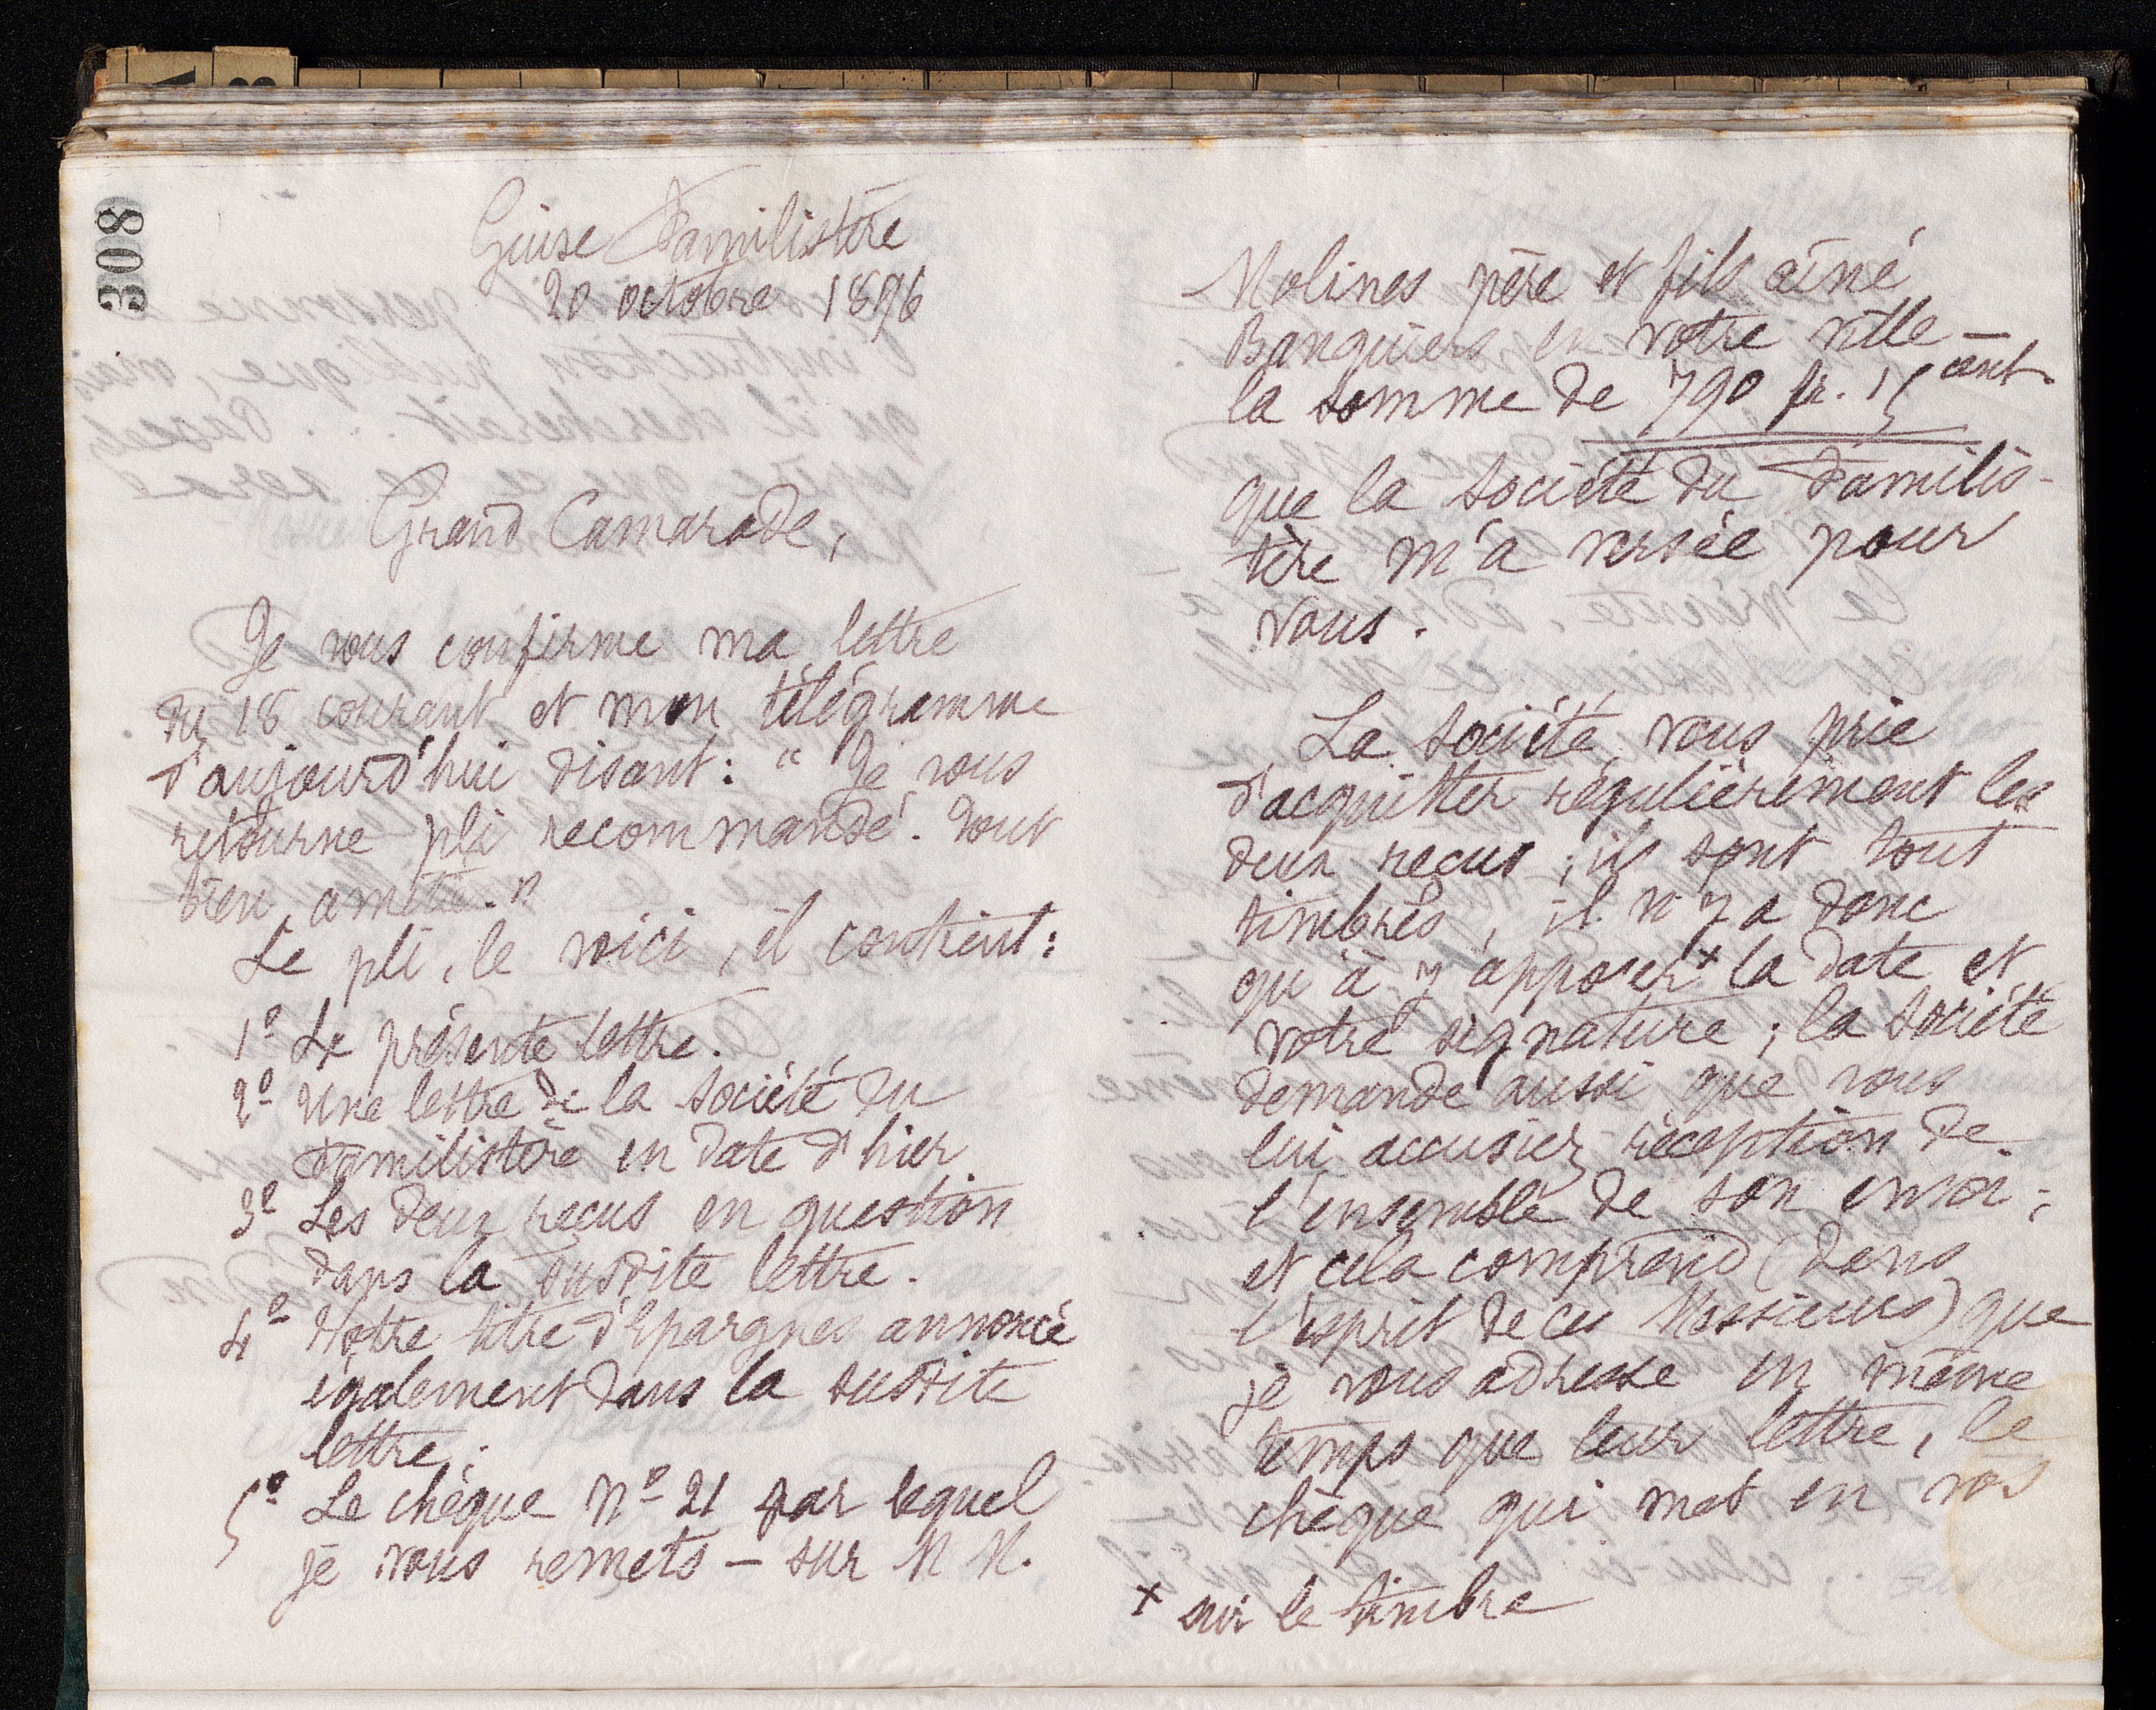 308
Guise Familistère
20 octobre 1896
Grand Camarade,
Je vous confirme ma lettre
du 18 courant et mon télégramme
d'aujourd'hui disant : " Je vous
retourne pli recommandé. Tout
bien, amitié. "
Le pli, le voici, il contient :
1º La présente lettre.
2º Une lettre de la Société du
Familistère en date d'hier
3º Les deux reçus en question
dans la susdite lettre.
4º Votre titre d'Epargnes annoncé
également dans la susdite
lettre ;
5º Le chèque Nº 21 par lequel
je vous remets — sur M M.
Molines père et fils aîné
Banquiers en votre ville —
la somme de 790 fr. 15 cent.
que la Société du Familis-
tère m'a versée pour
vous.
La Société vous prie
d'acquitter régulièrement les
deux reçus ; ils sont tout
timbrés, il n'y a donc
qu'à y apposer x la date et
votre signature ; la Société
demande aussi que vous
lui accusiez réception de
l'ensemble de son envoi ;
et cela comprend (dans
l'esprit de ces Messieurs) que
je vous adresse en même
temps que leur lettre, le
chèque qui met en vos
x sur le timbre